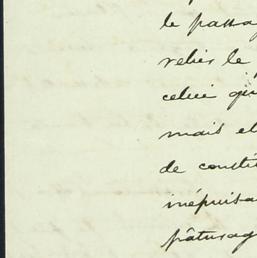 le passa
relier le
celui qu
mais el
de consti
inépuisa
pâturag